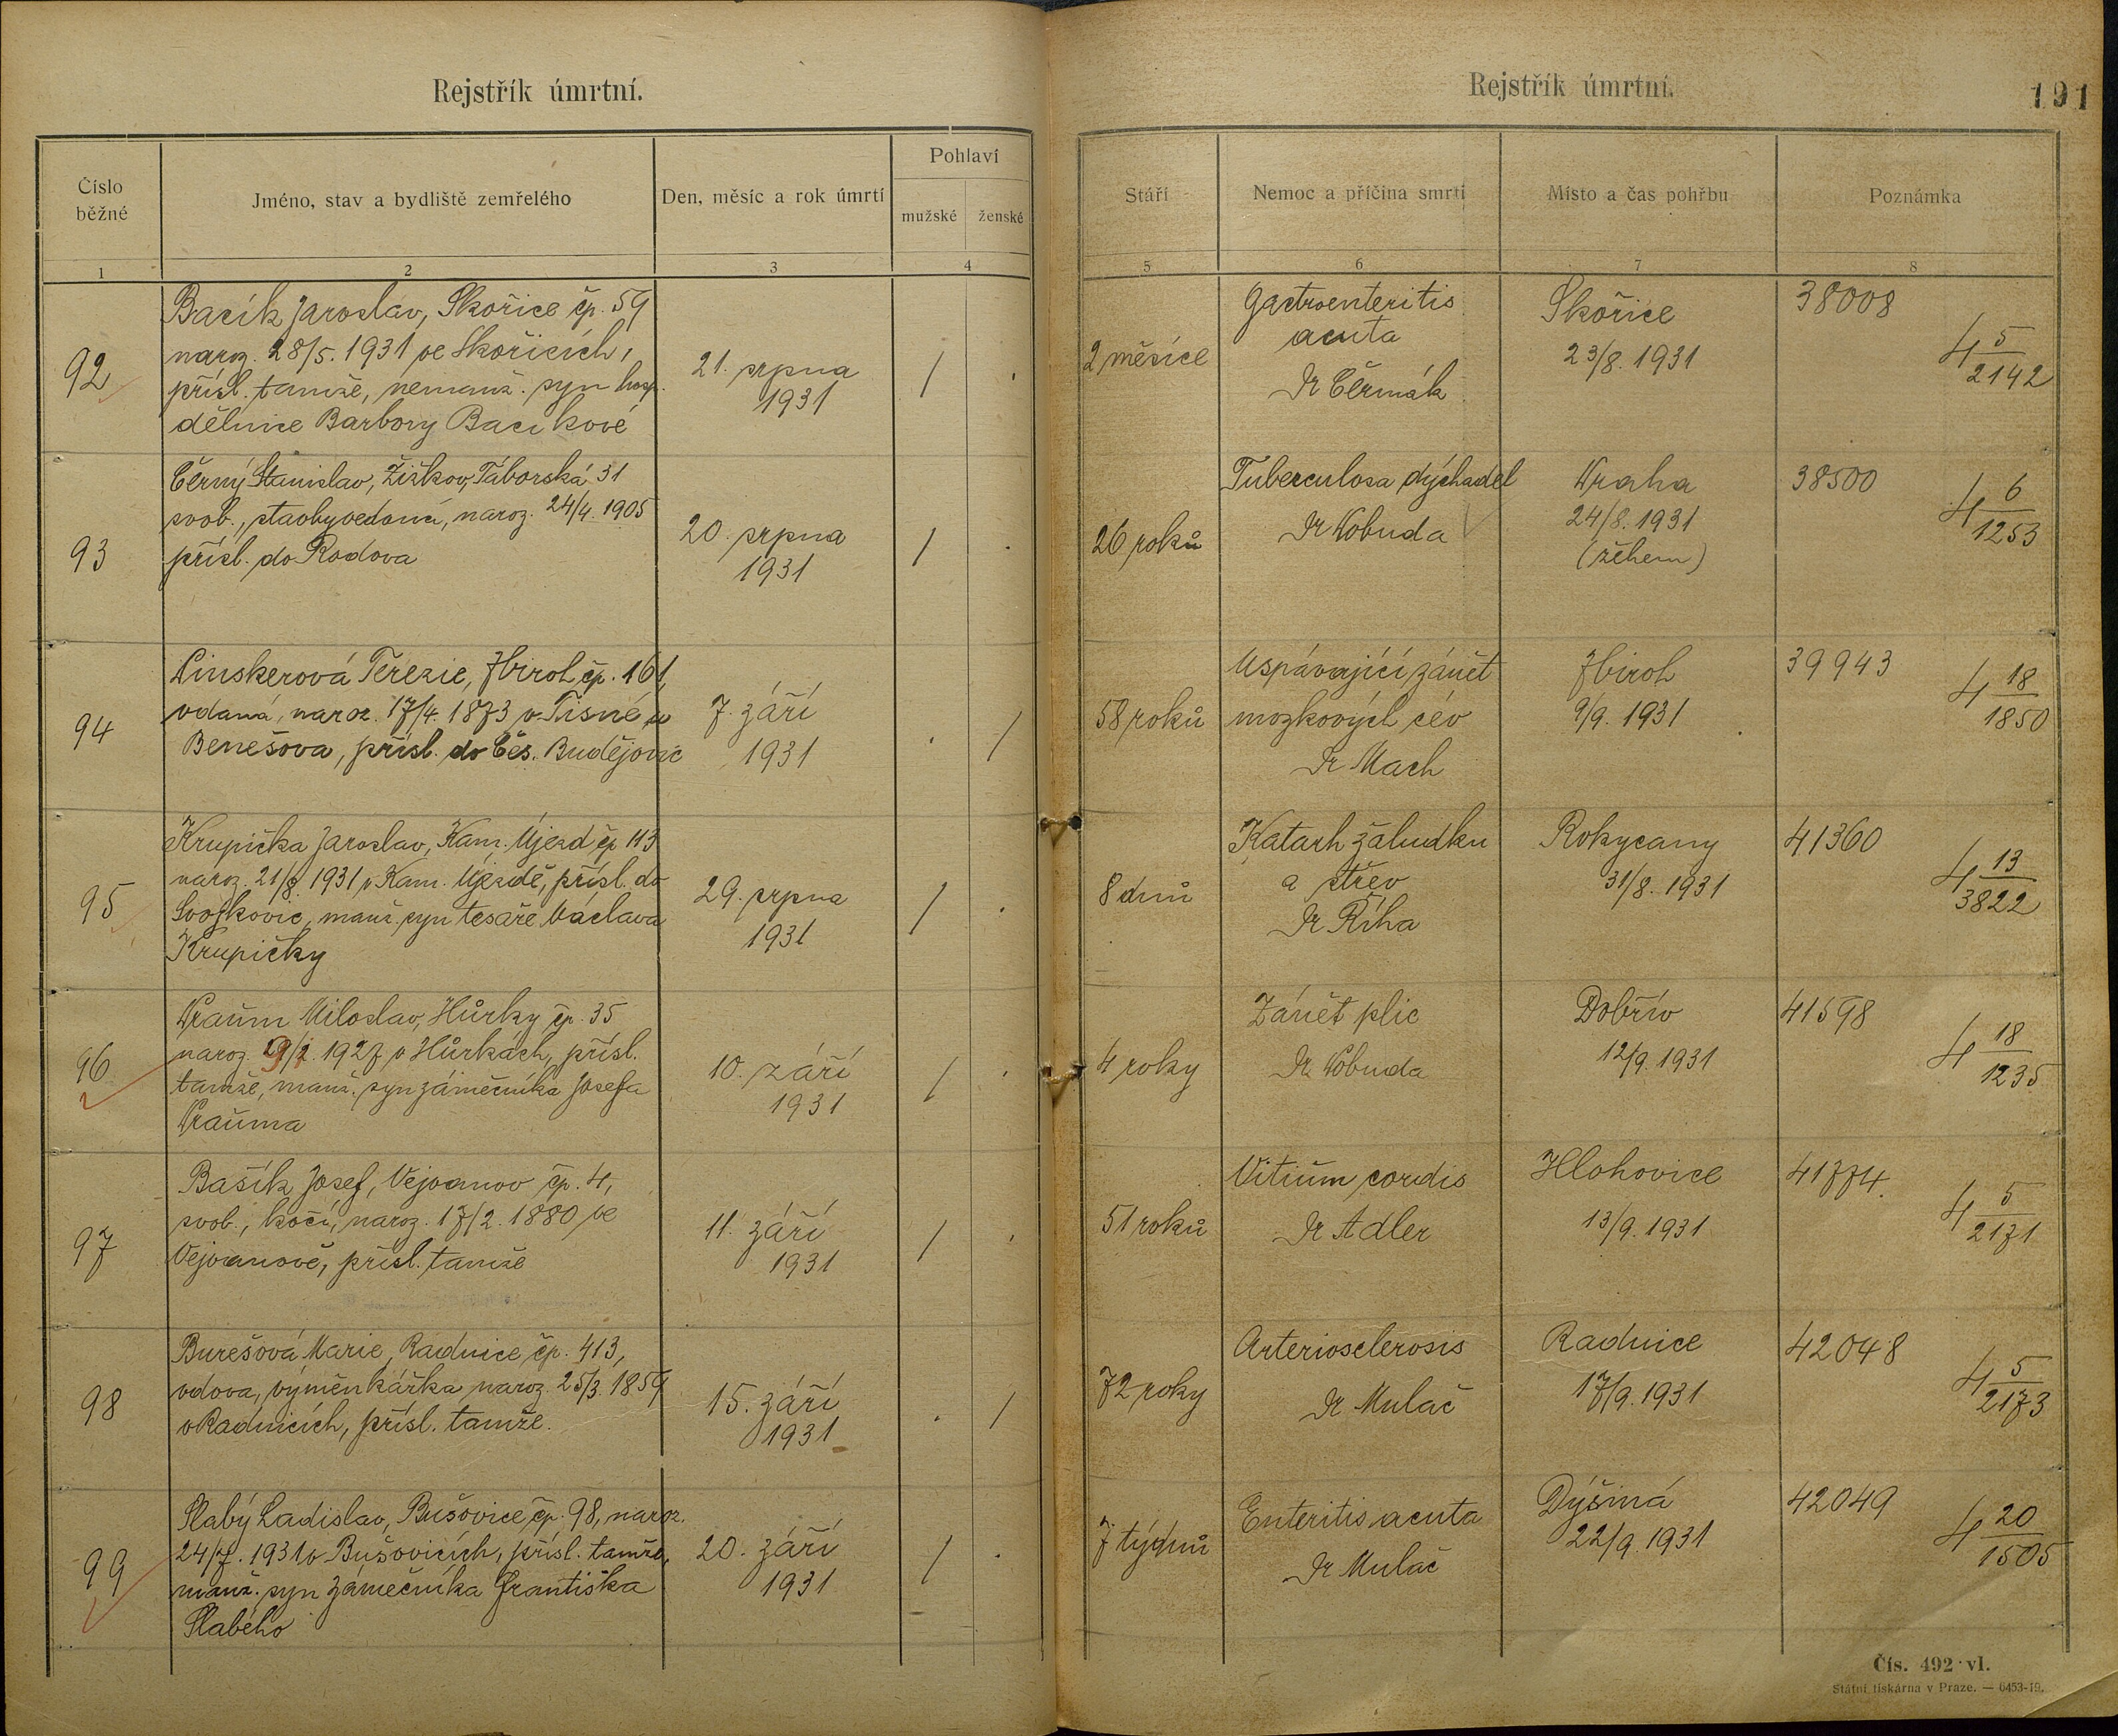 Rejstřík úmrtní.
Číslo běžné
Jméno, stav a bydliště zemřelého
Den, měsíc a rok úmrtí
Pohlaví
mužské ženské
1 2 3 4
92
Bacík Jaroslav, Skořice čp. 59
naroz. 28/5. 1931 ve Skořicích,
přísl. tamže, nemanž. syn hosp.
dělnice Barbory Bacikové
21. srpna
1931
/ .
93
Černý Stanislav, Žižkov, Táborská 31
svob., naroz. 24/4. 1905
přísl. do Rodova
20. srpna
1931
/ .
94
Linskerová Terezie, Zbiroh čp. 161,
vdaná, naroz. 17/4. 1873 v Tisné u
Benešova, přísl. do Čes. Budějovic
7. září
1931
. /
95
Krupička Jaroslav, Kam. Újezd čp 113
naroz. 21/8. 1931 v Kam. Újezdě, přísl. do
Svojkovic, manž. syn tesaře Václava
Krupičky
29. srpna
1931
/ .
96
Miloslav, Hůrky čp. 35
naroz. 1927 v Hůrkách, přísl.
tamže, manž. syn zámečníka Josefa
10. září
1931
/ .
97
Bašík Josef, Vejvanov čp. 4,
svob., kočí, naroz. 17/2. 1880 ve
Vejvanově, přísl. tamže
11. září
1931
/ .
98
Burešová Marie, Radnice čp. 413,
vdova, výměnkářka naroz. 25/3. 1859
v Radnicích, přísl. tamže.
15. září
1931
. /
99
Slabý Ladislav, Bušovice čp. 98, naroz.
24/7. 1931 v Bušovicích, přísl. tamže,
manž. syn zámečníka Františka
Slabého
20. září
1931
/ .
Rejstřík úmrtní.
191
Stáří
Nemoc a příčina smrti
Místo a čas pohřbu
Poznámka
5 6 7 8
2 měsíce
Gastroenteritis
acuta
Dr Čermák
Skořice
23/8. 1931
38008
4 5/2142
26 roků
Tuberculosa dýchadel
Dr Vobuda
Praha
24/8. 1931
(žehem)
38500
4 6/1253
58 roků
Uspávající zánět
mozkových cév
Dr Mach
Zbiroh
9/9. 1931
39943
4 18/1850
8 dnů
Katarh žaludku
a střev
Dr Říha
Rokycany
31/8. 1931
41360
4 13/3822
4 roky
Zánět plic
Dr Vobuda
Dobřív
12/9. 1931
41598
4 18/1235
51 roků
Vitium cordis
Dr Adler
Hlohovice
13/9. 1931
41774.
4 5/2171
72 roky
Arteriosclerosis
Dr Mulač
Radnice
17/9. 1931
42048
4 5/2173
7 týdnů
Enteritis acuta
Dr Mulač
Dýšiná
22/9. 1931
42049
4 20/1505
Čís. 492 vl.
Státní tiskárna v Praze. — 0453-19.